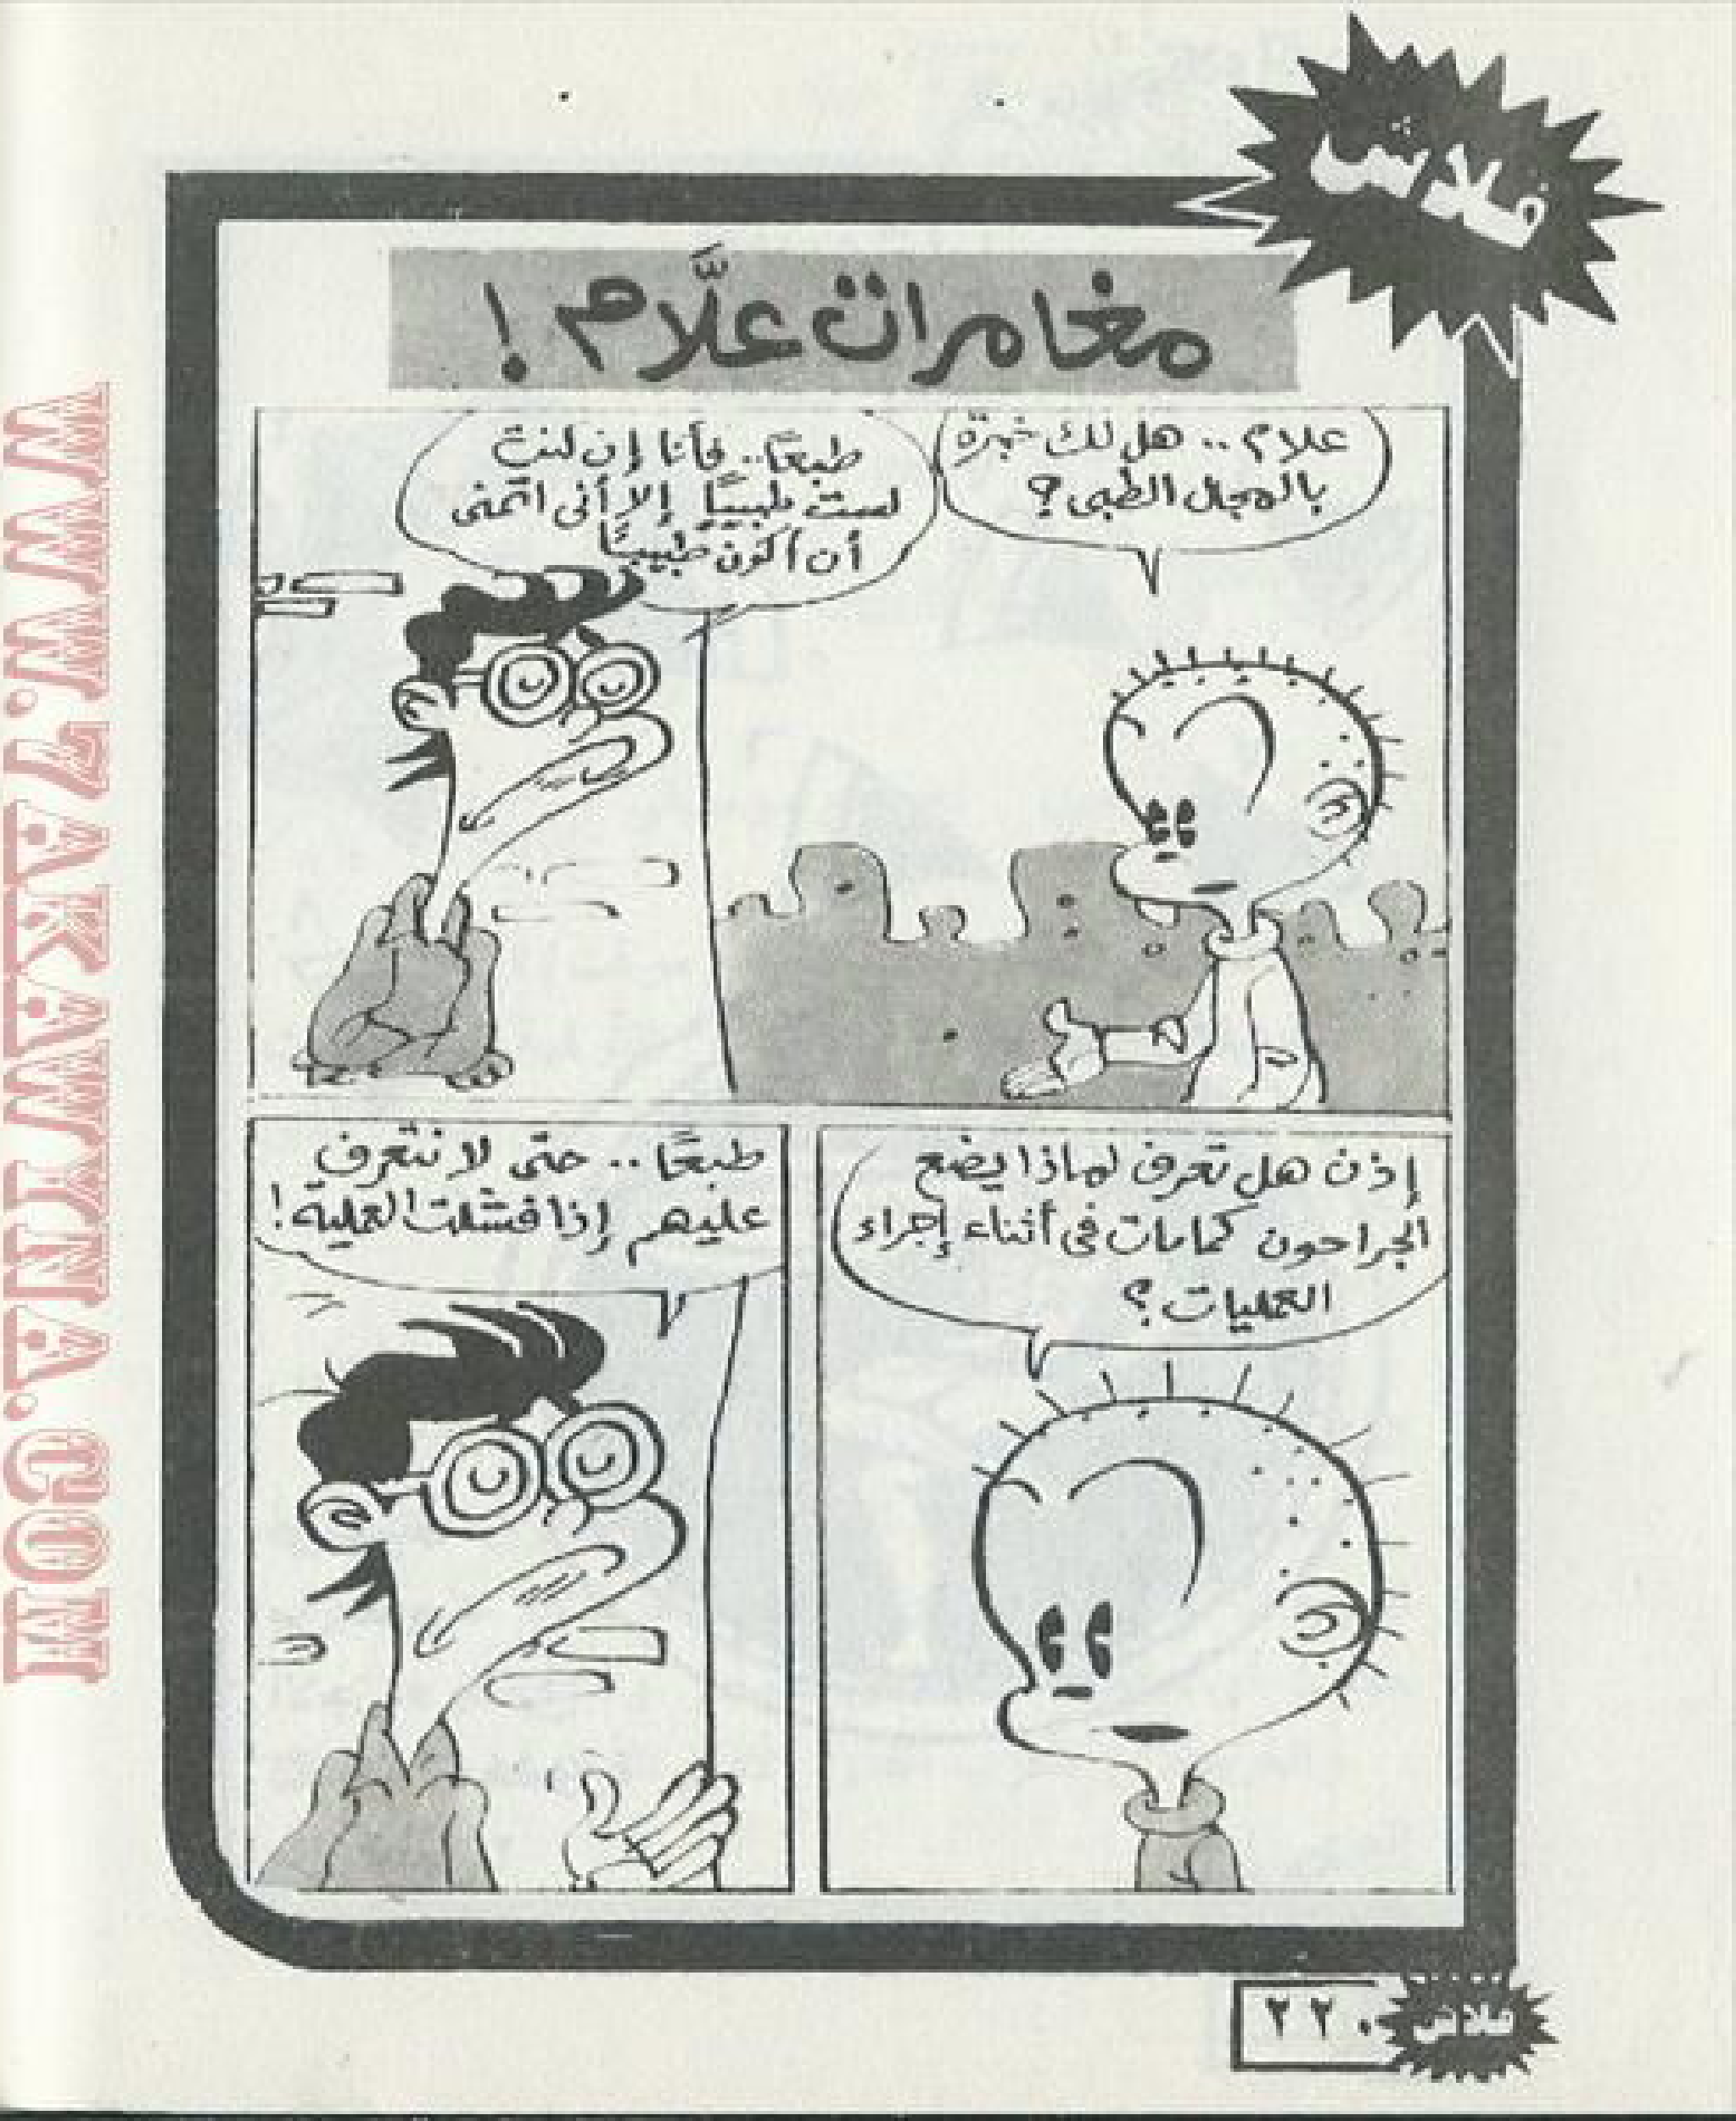 فلاش
مغامرات علَّام !
علام .. هل لك خبرة
بالمجال الطبى ؟
طبعًا .. فأنا إن كنت
لست طبيبًا إلا أنى اتمنى
أن أكون طبيبًا
إذن هل تعرف لماذا يضع
الجراحون كمامات فى أثناء إجراء
العمليات ؟
طبعًا .. حتى لا نتعرف
عليهم إذا فشلت العملية !
٢٢
فلاش
WWW.7AKAWTINA.COM